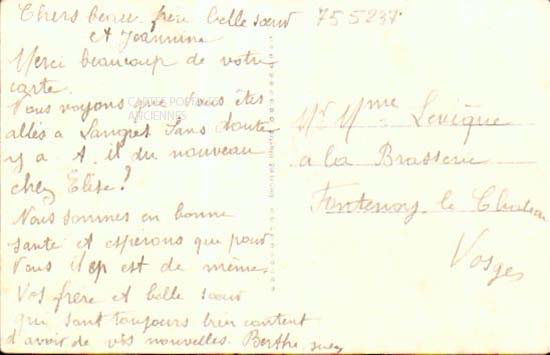 Chers beau frère belle sœur
et Jeannine
Merci beaucoup de votre
carte.
Nous voyons que vous êtes
allés à Langres sans doute
y a t. il du nouveau
chez Elise?
Nous sommes en bonne
santé et espérons que pour
vous il en est de même.
Vos frère et belle sœur
qui sont toujours bien content
d'avoir de vos nouvelles. Berthe
755237
CARTES POSTALES
ANCIENNES
Mr Mme Levêque
a la Brasserie
Fontenoy le Chateau
Vosges